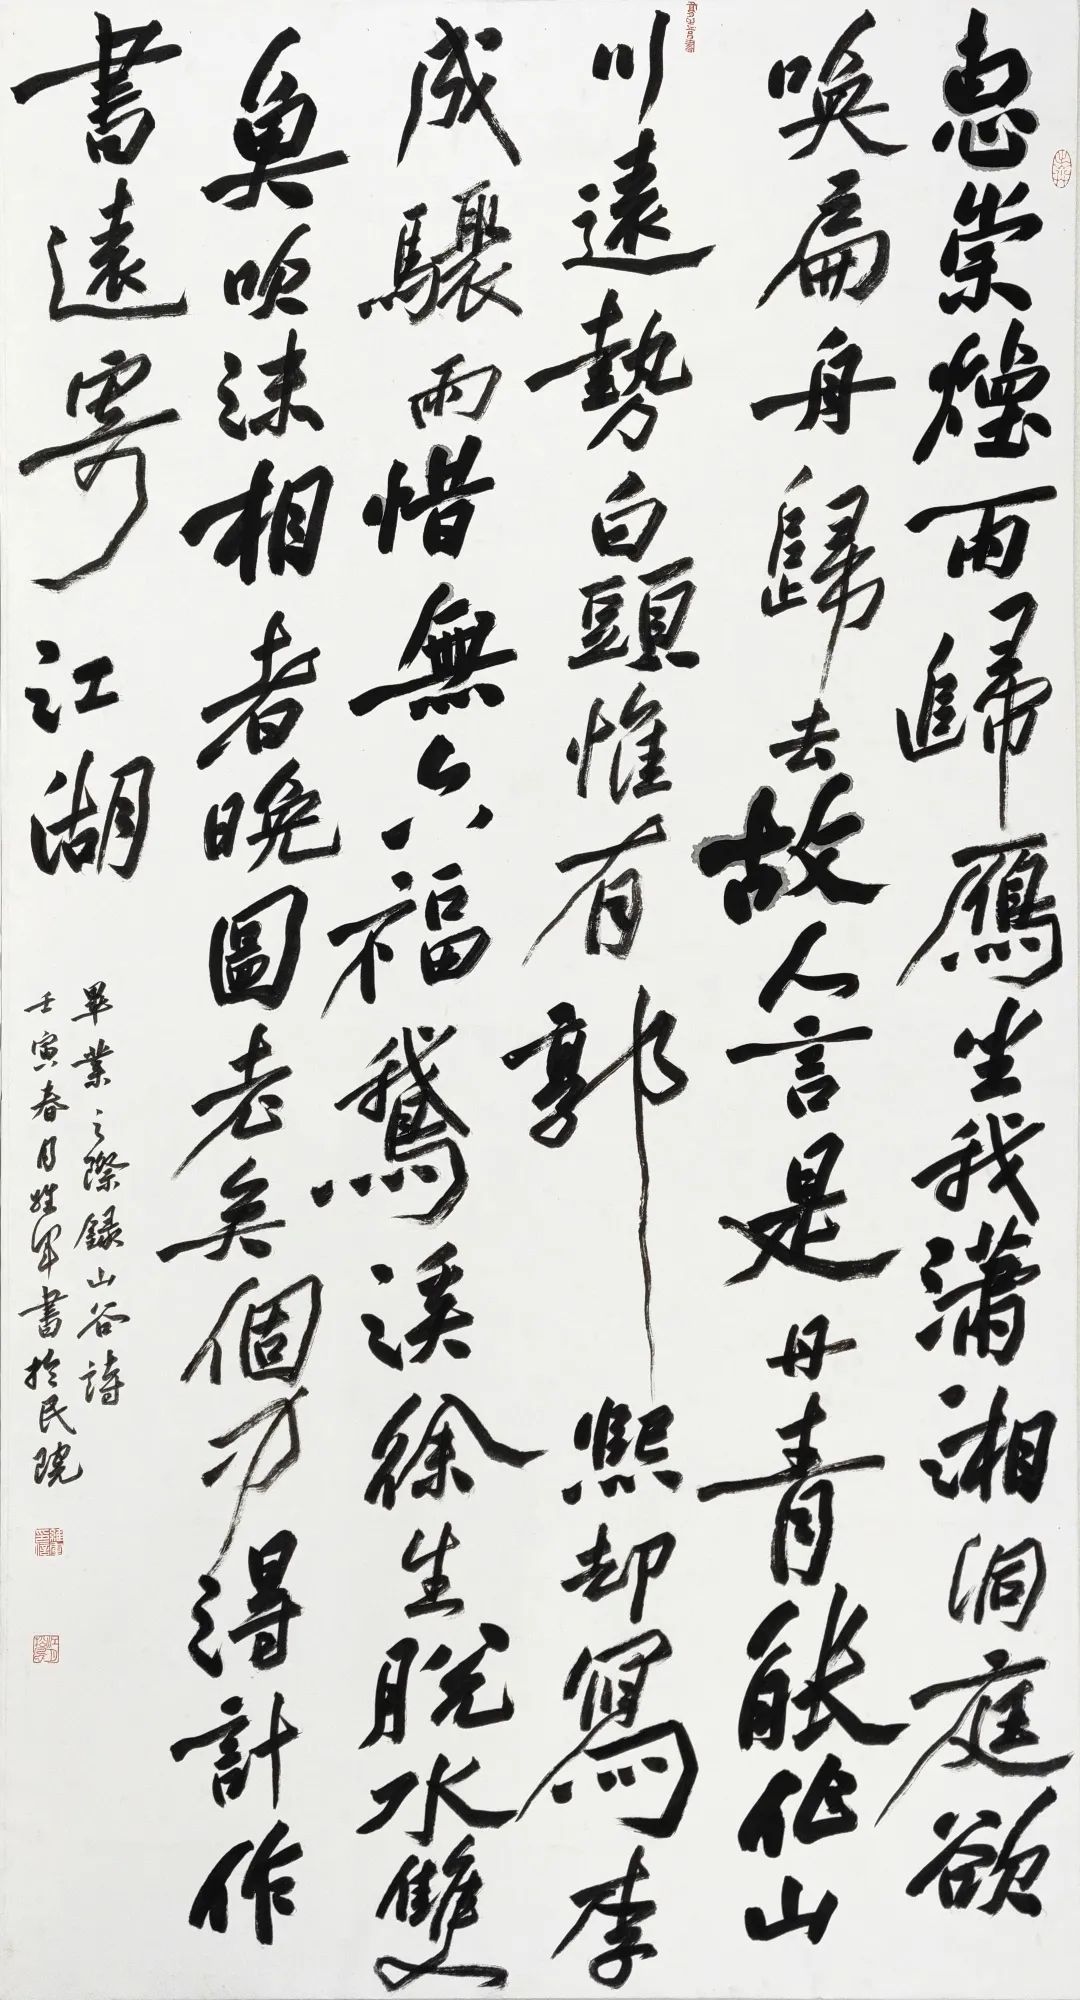 惠崇煙雨歸鴈坐我瀟湘洞庭欲
喚扁舟歸去故人言是丹青能作山
川遠勢白頭惟有郭熙却寫李
成驟雨惜無六福鵝溪徐生脫水雙
魚吹沫相看晚圖老矣個中得計作
書遠寄江湖
畢業之際錄山谷詩
壬寅春月軍書於民院